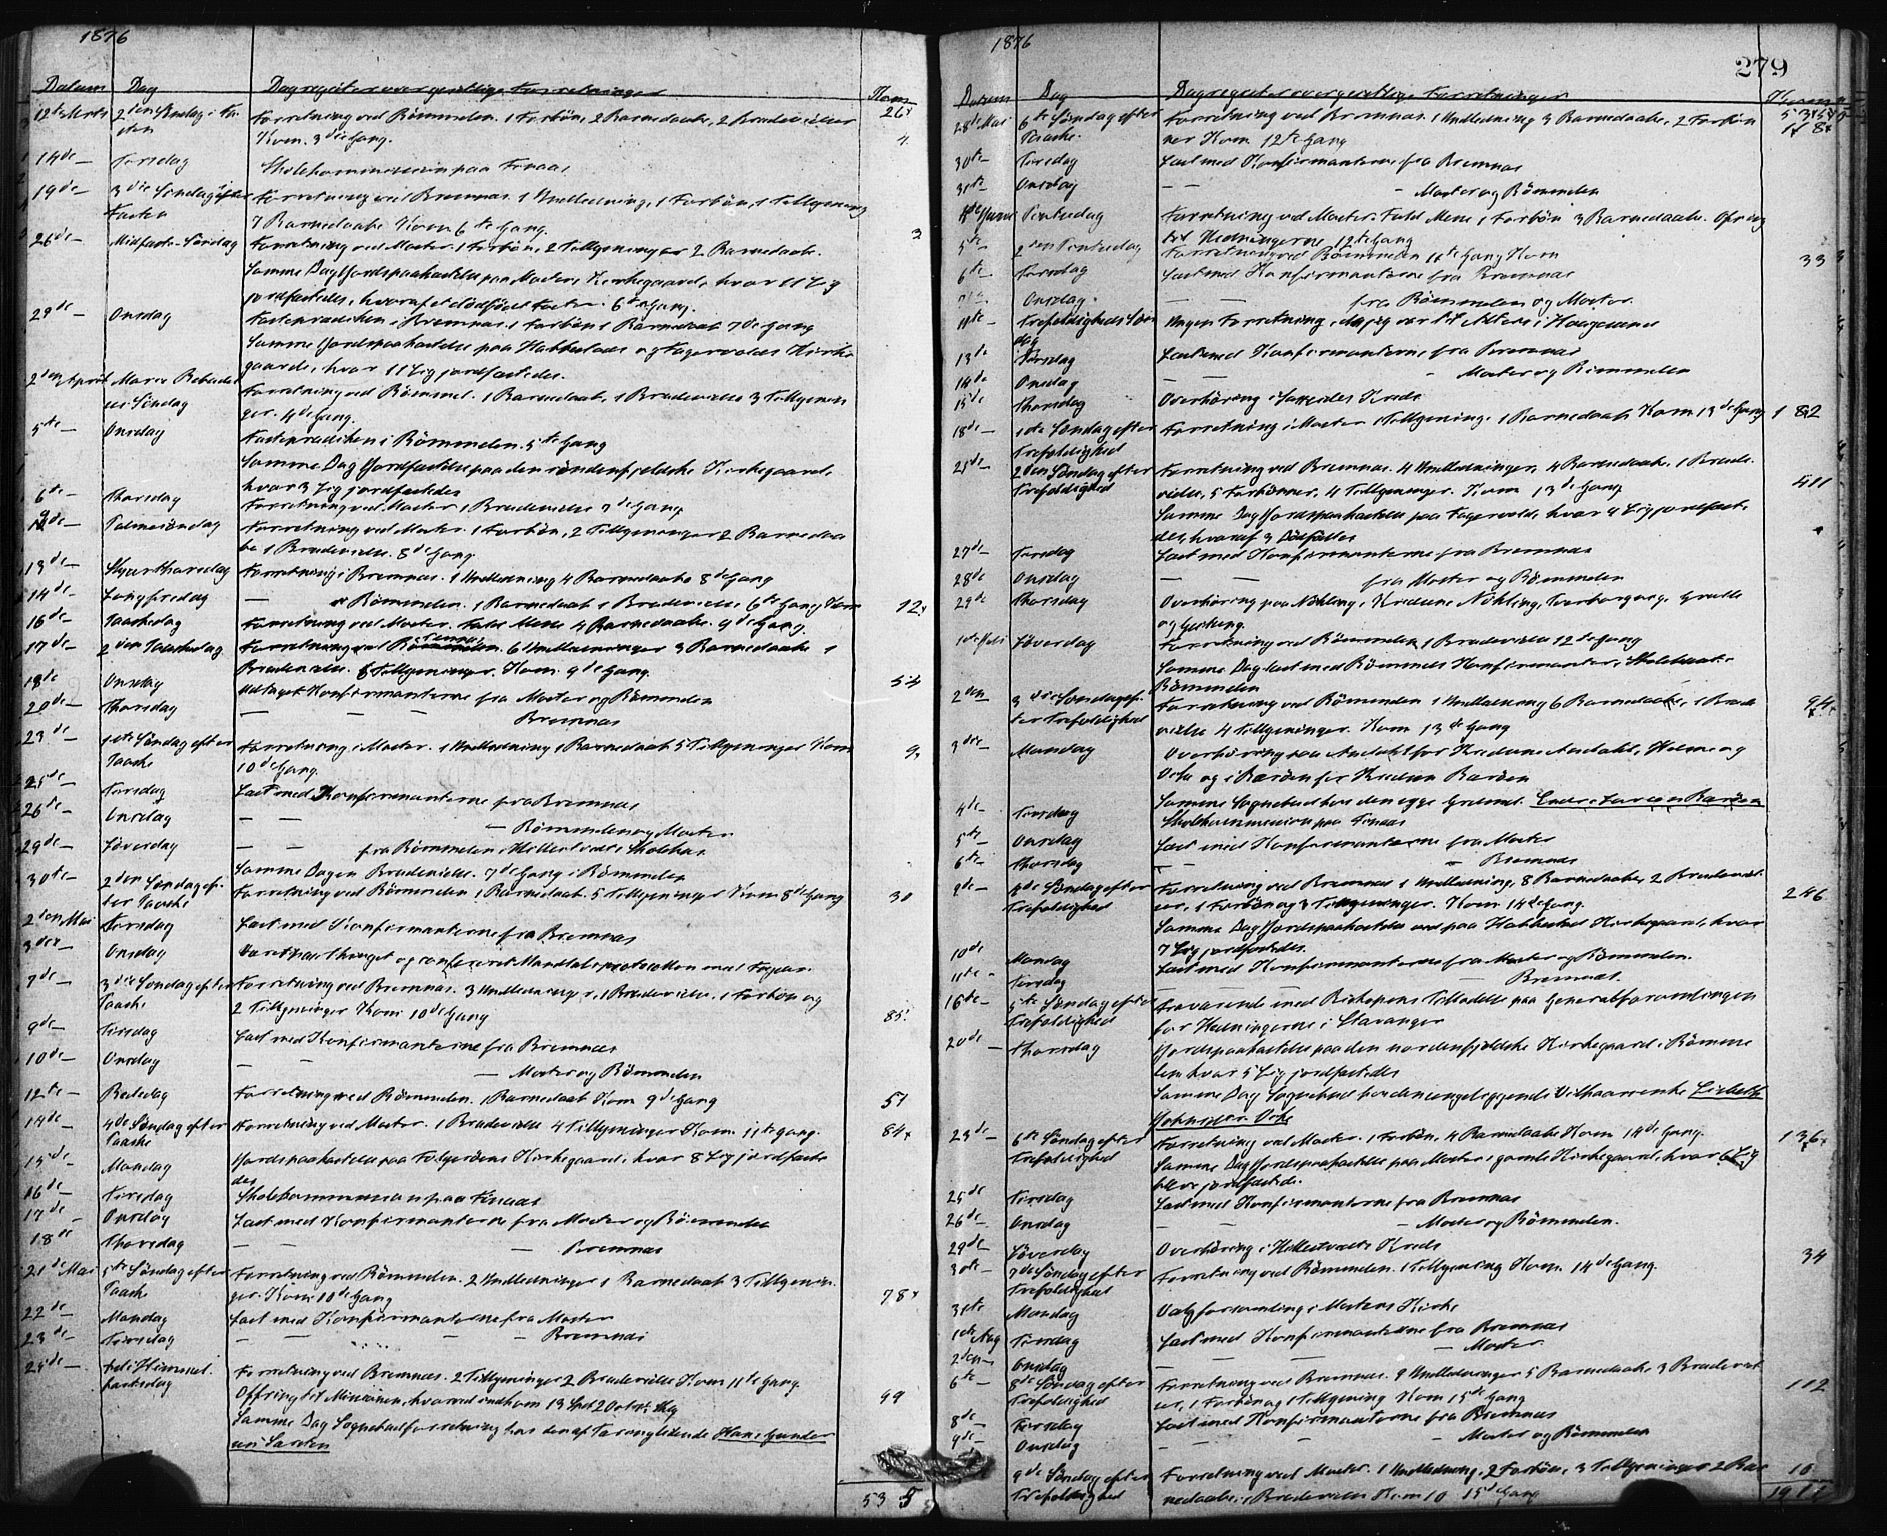 1876
Datum Dag Dagregister over gejstlige Forretninger Kom
12te Marts 2den Søndag i Fa- Forretning ved Bømmelen. 1 Forbøn, 2 Barnedaab, 2 Brudevielser 26
sten Kom. 3die Gang. 4
14de — Tirsdag Skolekommission paa Finaas
19de — 3die Søndag efter Forretning ved Bremnæs. 1 Indledning, 1 Forbøn, 1 Tillysning
Fasten 7 Barnedaab Kom 6te Gang.
26de — Midfaste-Søndag Forretning ved Moster. 1 Forbøn, 2 Tillysninger 2 Barnedaab.
Samme Dag Jordspaakastelse paa Moster Kirkegaard, hvor 11 Lig
jordfæstedes, hvoraf et dødfødt 6te Gang.
29de — Onsdag Fasteprædiken i Bremnæs. 1 Forbøn 1 Barnedaab 7de Gang
Samme Jordspaakastelse paa Habbestads og Fagervolds Kirke
gaarde, hvor 11 Lig jordfæstedes.
2den April Mariæ Bebudel Forretning ved Bømmel. 1 Barnedaab, 1 Brudevielse 3 Tillysnin
ses Søndag ger. 4de Gang.
5te — Onsdag Fasteprædiken i Bømmelen. 5te Gang
Samme Dag Jordfæstelse paa den søndenfjeldske Kirkegaard,
hvor 3 Lig jordfæstedes
6te — Thorsdag Forretning ved Moster 1 Brudevielse 7de Gang
9de — Palmesøndag Forretning ved Moster. 1 Forbøn, 2 Tillysninger 2 Barnedaa
be 1 Brudevielse. 8de Gang
13de — Skjærthorsdag Forretning i Bremnæs. 1 Indledning 4 Barnedaabe 8de Gang
14de — Langfredag — Bømmelen. 1 Barnedaab 1 Brudevielse 6te Gang Kom 12
16de — Paaskedag Forretning ved Moster. Fuld Messe 4 Barnedaabe. 9de Gang.
17de — 2den Paaskedag Forretning ved Bremnæs. 6 Indledninger 3 Barnedaabe 1
Brudevielse. 8 Tillysninger. Kom. 9de Gang.
18de Onsdag Udtaget Konfirmanterne fra Moster og Bømmelen 54
20de — Thorsdag — — — Bremnæs
23de — 1ste Søndag efter Forretning i Moster. 1 Indledning 1 Barnedaab 5 Tillysninger Kom 9
Paaske 10de Gang.
25de — Tirsdag Læst med Konfirmanterne fra Bremnæs
26te — Onsdag — — — Bømmelen og Moster
29de — Løverdag — — fra Bømmelen i Skolehus
Samme Dag en Brudevielse. 7de Gang i Bømmelen
30te — 2den Søndag ef- Forretning ved Bømmelen 1 Barnedaab 5 Tillysninger Kom 8de Gang 30
ter Paaske
2den Mai Tirsdag Læst med Konfirmanterne fra Bremnæs
3die — Onsdag Været paa thinget og confereret Mandtalsprotocollen med Fogden.
7de — 3die Søndag efter Forretning ved Bremnæs. 3 Indledninger, 1 Brudevielse, 1 Forbøn og
Paaske 2 Tillysninger Kom 10de Gang 85
9de — Tirsdag Læst med Konfirmanterne fra Bremnæs
10de — Onsdag — — Moster og Bømmelen
12te — Bededag Forretning ved Bømmelen. 1 Barnedaab Kom 9de Gang 51
14de — 4de Søndag efter Forretning ved Moster. 1 Brudevielse 4 Tillysninger Kom. 11te Gang. 84
Paaske
15de — Mandag Jordspaakastelse paa Folgerøens Kirkegaard, hvor 8 Lig jordfæste
des
16de — Tirsdag Skolekommission paa Finaas
17de — Onsdag Læst med Konfirmanterne fra Moster og Bømmelen
18de Thorsdag — — — Bremnæs
21de Mai 5te Søndag efter Forretning ved Bømmelen. 2 Indledninger 1 Barnedaab 3 Tillysnin-
Paaske ger. Kom 10de Gang 78
22de — Mandag Læst med Konfirmanterne fra Moster
23de — Tirsdag — — — — Bremnæs
25de — Kristi Himmel- Forretning ved Bremnæs. 2 Tillysninger 2 Brudevielse Kom 11te Gang.
fartsdag Offring til Missionen, hvorved indkom 13 Spd 20 ort 99
Samme Dag Sognebudsforretning hos den af Tæring lidende Hans Gunder
sen
53 5
1876
279
Datum Dag Dagregister over gejstlige Forretninger Kom
28de Mai 6te Søndag efter Forretning ved Bremnæs. 1 Indledning 3 Barnedaabe, 2 Forbøn
Paaske. ner Kom 12te Gang
30te — Tirsdag Læst med Konfirmanterne fra Bremnæs
31te Onsdag — — — Moster og Bømmelen
4de Juni Pintsedag Forretning ved Moster. Fuld Messe 1 Forbøn 3 Barnedaabe. Ofring
til Hedningerne 12te Gang
5te — 2den Pintsedag Forretning ved Bømmelen 11te Gang Kom 33
6te — Tirsdag Læst med Konfirmanterne fra Bremnæs
Onsdag. — — fra Bømmelen og Moster.
11te — Trefoldigheds Søn Ingen Forretning, da jeg var til Alters i Haugesund
dag
13de Tirsdag Læst med Konfirmanterne fra Bremnæs
14de Onsdag — — — Moster og Bømmelen
15de Thorsdag Overhøring i Kreds
18de — 1ste Søndag efter Forretning i Moster 1 Tillysning. 1 Barnedaab Kom 13de Gang 182
Trefoldighed
25de — 2den Søndag efter Forretning ved Bremnæs. 4 Indledninger, 4 Barnedaabe, 1 Brude-
Trefoldighed vielse, 5 Forbønner, 4 Tillysninger. Kom 13de Gang
Samme Dag Jordspaakastelse paa Fagervold, hvor 4 Lig jordfæst.
des, hvoraf 3 Dødfødte
27de — Tirsdag Læst med Konfirmanterne fra Bremnæs
28de Onsdag — — fra Moster og Bømmelen
29de Thorsdag Overhøring paa Nøkling, Kredsene Nøkling,
1ste Juli Løverdag Forretning ved Bømmelen, 1 Brudevielse 12te Gang
Samme Dag læst med Bømmels Konfirmanter,
Bømmelen
2den 3die Søndag ef- Forretning ved Bømmelen 1 Indledning 6 Barnedaabe, 1 Brude 94
ter Trefoldighed vielse 4 Tillysninger. Kom 13de Gang
3die — Mandag Overhøring paa Andahl for Kredsene Andahl, Holme og
Økland og i Barøen for Kredsen Barøen
Samme Sognebud hos den syge Gaardmd. Endre Larsen Barøen
4de — Tirsdag Skolekommission paa Finaas
5te — Onsdag Læst med Konfirmanterne fra Moster
6te — Thorsdag — — Bremnæs
9de — 4de Søndag efter Forretning ved Bremnæs 1 Indledning 8 Barnedaabe, 2 Brudeviel-
Trefoldighed ser, 1 Forbøn og 3 Tillysninger. Kom 14de Gang. 246
Samme Dag Jordspaakastelse ved paa Habbestad Kirkegaard, hvor
7 Lig jordfæstedes.
10de Mandag Læst med Konfirmanterne fra Moster og Bømmelen.
11te — Tirsdag — — — Bremnæs.
16de — 5te Søndag efter Fraværende med Biskopens Tilladelse paa Generalforsamlingen
Trefoldighed for Hedningerne i Stavanger
20de — Thorsdag Jordspaakastelse paa den nordenfjeldske Kirkegaard i Bømme
len hvor 5 Lig jordfæstedes
Samme Dag Sognebud hos den sengeliggende Vilkaarsenke Lisbeth
23de — 6te Søndag efter Forretning ved Moster. 1 Forbøn, 4 Barnedaabe Kom 14de Gang. 136
Trefoldighed Samme Dag Jordspaakastelse paa Moster gamle Kirkegaard, hvor 6 Lig
bleve jordfæstede.
25de Tirsdag Læst med Konfirmanterne fra Bremnæs
26de — Onsdag — — — Moster og Bømmelen.
29de — Løverdag Overhøring i Kreds
30te — 7de Søndag efter Forretning ved Bømmelen. 1 Tillysning Kom 14de Gang. 34
Trefoldighed
31te Mandag Valgforsamling i Mosters Kirke
1ste Aug Tirsdag Læst med Konfirmanterne fra Bremnæs
2den — Onsdag — — — Moster
6te — 8de Søndag efter Forretning ved Bremnæs. 9 Indledninger 5 Barnedaabe 3 Brudeviel 112
Trefoldighed ser, 1 Forbøn og 1 Tillysning Kom 15de Gang
8de — Tirsdag Læst med Konfirmanterne fra Bremnæs
9de — Onsdag — — — Moster og Bømmelen
9de Søndag efter Forretning ved Moster. 1 Indledning, 2 Forbøn, 3 Tillysninger 2 Bar 10
Trefoldighed nedaabe, 1 Brudevielse Kom 10 15de Gang